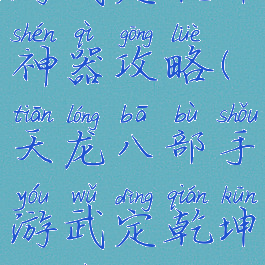 shén qì gōng lüè
神器攻略(
tiān lóng bā bù shǒu
天龙八部手
yóu wǔ dìng qián kūn
游武定乾坤